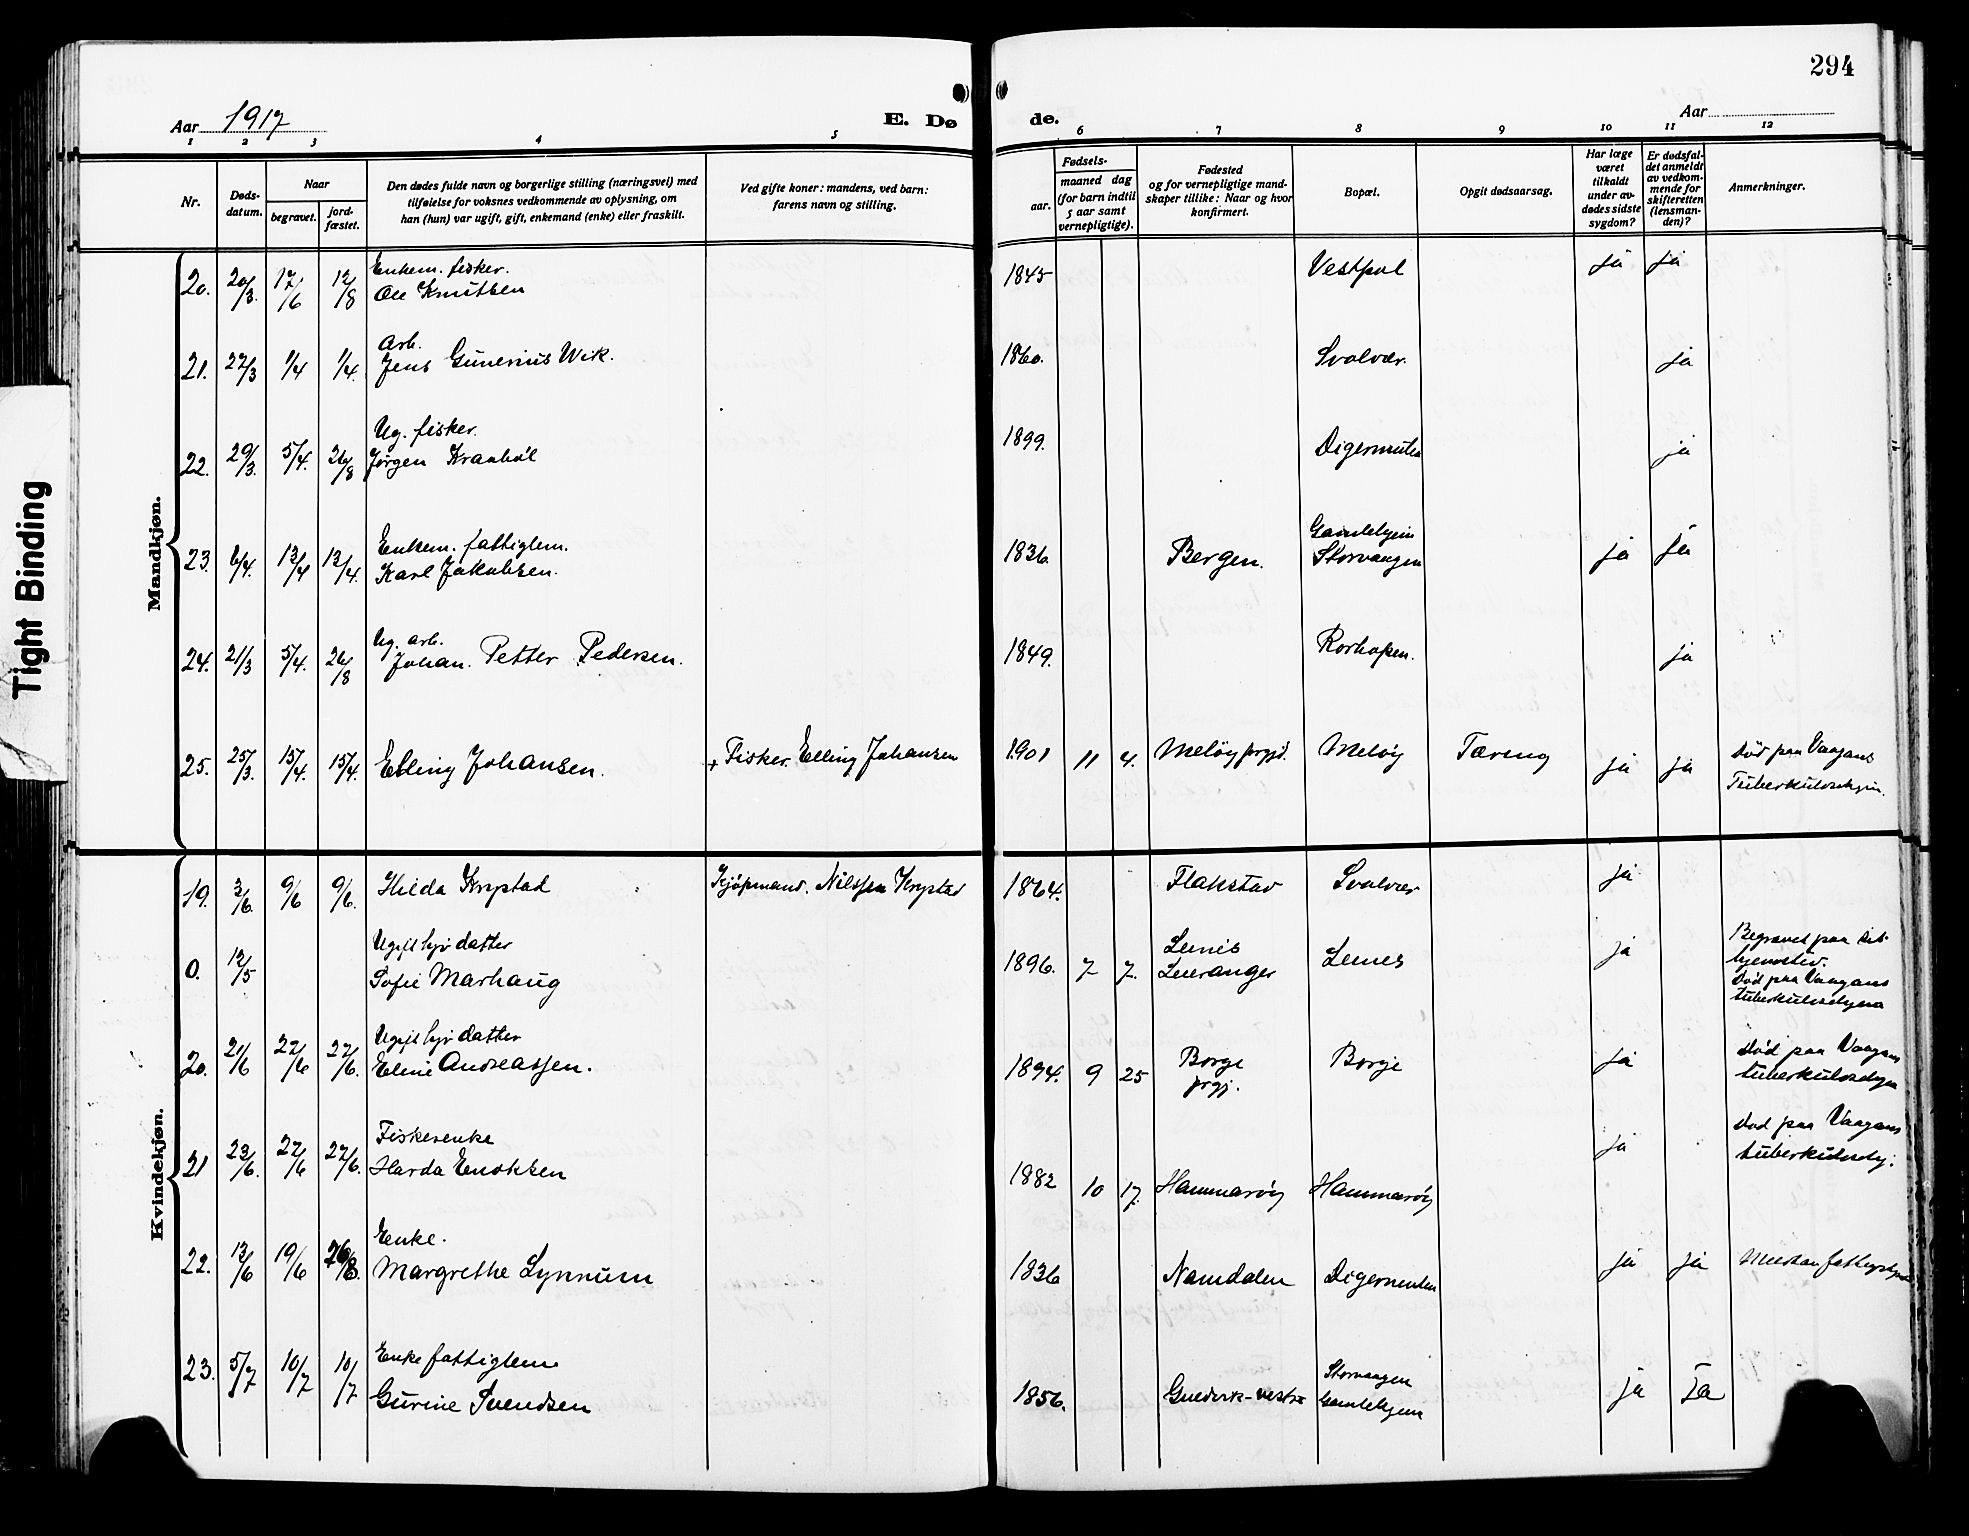 294
Aar 1917
E. Dø
de.
Aar
1 2 3 4 5 6 7 8 9 10 11 12
Nr.
Døds-
datum.
Naar
begravet.
jord-
fæstet.
Den dødes fulde navn og borgerlige stilling (næringsvei) med
tilføielse for voksnes vedkommende av oplysning, om
han (hun) var ugift, gift, enkemand (enke) eller fraskilt.
Ved gifte koner: mandens, ved barn:
farens navn og stilling.
Fødsels-
aar.
maaned dag
(for barn indtil
5 aar samt
vernepligtige).
Fødested
og for vernepligtige mand-
skaper tillike: Naar og hvor
konfirmert.
Bopæl.
Opgit dødsaarsag.
Har læge
været
tilkaldt
under av-
dødes sidste
sygdom?
Er dødsfal-
det anmeldt
av vedkom-
mende for
skifteretten
(lensman-
den)?
Anmerkninger.
Tight Binding
Mandkjøn.
Enkem. fisker.
20. 20/3. 17/6 12/8 Ole Knutsen 1845 Vestpol ja ja
Arb.
21. 27/3 1/4 1/4. Jens Gunerius Wik. 1860. Svolvær. ja
Ug. fisker.
22. 29/3. 5/4. 26/8 Jørgen 1899. Digermulen ja
Enkem. fattiglem. Gamlehjem
23. 6/4. 13/4 13/4. Karl Jakobsen. 1836. Bergen. Storvaagen ja ja
Ug. arb.
24. 21/3 5/4. 26/8 Johan Petter Pedersen. 1849. Rorhopen. ja
25. 25/3. 15/4. 15/4. Elling Johansen. + Fisker Elling Johansen 1901 11 4. Meløy prgjd. Meløy Tæring ja ja Død paa Vaagans
Tuberkulosehjem.
Kvindekjøn.
19. 3/6. 9/6 9/6. Hilda Krystad Kjøpmand. Nilssen Krystad 1864. Flakstad Svolvær ja
Ugift hjv datter
0. 12/5 Sofie Marhaug 1896. 7 7. Lenes Leiranger Lenes ja Begravet paa sit
hjemsted.
Død paa Vaagans
tuberkulosehjem
Ugift hjv datter
20. 21/6 22/6 22/6. Eline Andreassen. 1894. 9 25 Borge prgj. Borge ja Død paa Vaagans
tuberkulosehjem
Fiskerenke
21 23/6. 27/6 27/6. Harda Enoksen 1882 10 17. Hammarøy Hammarøy ja død paa Vaagans
tuberkulosehj.
Enke.
22. 13/6 19/6 26/8. Margrethe Lynnum 1836 Namdalen Digermulen ja ja
Enke fattiglem
23. 5/7 10/7 10/7 Gurine Svendsen 1856. Storvaagen
Gamlehjem ja Ja